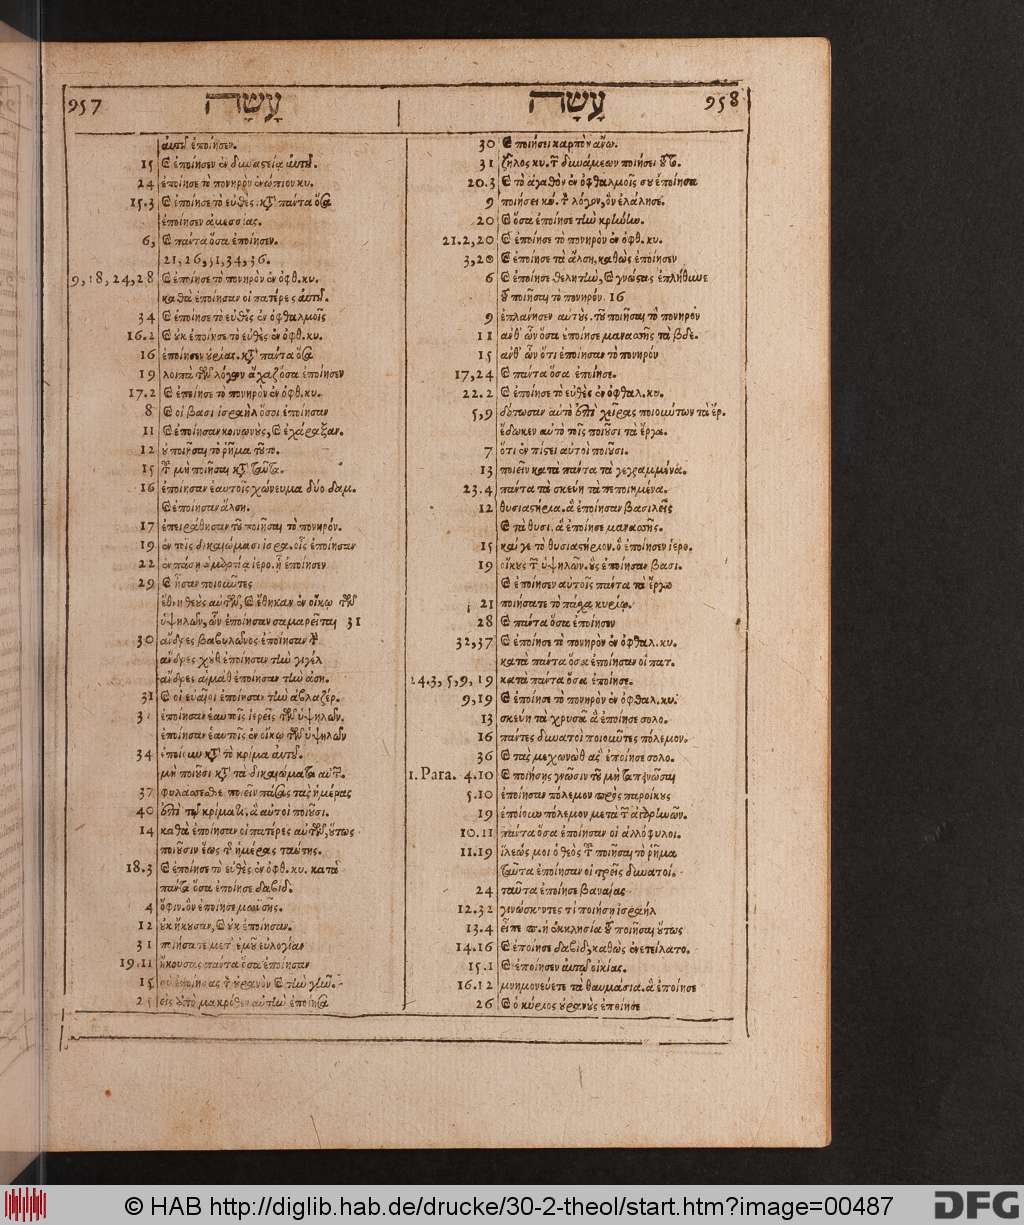 957 עָשָׂה
αὐτοῦ ἐποίησεν.
15 καὶ ἐποίησεν ἐν δυναστείᾳ αὐτοῦ.
24 ἐποίησε τὸ πονηρὸν ἐνώπιον κυ.
15.3 καὶ ἐποίησε τὸ εὐθὲς κατὰ πάντα ὅσα
ἐποίησεν ἀμεσσίας.
6, καὶ πάντα ὅσα ἐποίησεν.
21, 26, 31, 34, 36.
9, 18, 24, 28 καὶ ἐποίησε τὸ πονηρὸν ἐν ὀφθ. κυ.
καθὰ ἐποίησαν οἱ πατέρες αὐτοῦ.
34 καὶ ἐποίησε τὸ εὐθὲς ἐν ὀφθαλμοῖς
16.2 καὶ οὐκ ἐποίησε τὸ εὐθὲς ἐν ὀφθ. κυ.
16 ἐποίησεν οὐρίας. κατὰ πάντα ὅσα
19 λοιπὰ τῶν λόγων ἄχαζ ὅσα ἐποίησεν
17.2 καὶ ἐποίησε τὸ πονηρὸν ἐν ὀφθ. κυ.
8 καὶ οἱ βασι ἰσραὴλ ὅσοι ἐποίησαν
11 καὶ ἐποίησαν κοινωνοὺς, καὶ ἐχάραξαν.
12 οὐ ποιῆσαι τὸ ῥῆμα τοῦτο.
15 τοῦ μὴ ποιῆσαι κατὰ ταῦτα.
16 ἐποίησαν ἑαυτοῖς χώνευμα δύο δαμ.
καὶ ἐποίησαν ἄλση.
17 ἐπειράθησαν τοῦ ποιῆσαι τὸ πονηρόν.
19 ἐν τοῖς δικαιώμασι ἰσρα. οἷς ἐποίησαν
22 ἐν πάσῃ ἁμαρτίᾳ ἱερο. ᾗ ἐποίησεν
29 καὶ ἦσαν ποιοῦντες
ἔθνη θεοὺς αὐτῶν, καὶ ἔθηκαν ἐν οἴκῳ τῶν
ὑψηλῶν, ὧν ἐποίησαν σαμαρεῖται 31
30 ἄνδρες βαβυλῶνος ἐποίησαν τὴν
ἄνδρες χοὺθ ἐποίησαν τὴν γιγέλ
ἄνδρες αἱμὰθ ἐποίησαν τὴν ἀση.
31 καὶ οἱ εὐαῖοι ἐποίησαν τὴν ἀβλαζέρ.
ἐποίησαν ἑαυτοῖς ἱερεῖς τῶν ὑψηλῶν.
ἐποίησαν ἑαυτοῖς ἐν οἴκῳ τῶν ὑψηλῶν
34 ἐποίουν κατὰ τὸ κρίμα αὐτῶν.
μὴ ποιοῦσι κατὰ τὰ δικαιώματα αὐτῶν.
37 φυλάσσεσθε ποιεῖν πάσας τὰς ἡμέρας
40 ἐπὶ τῷ κρίματι. ἃ αὐτοὶ ποιοῦσι.
14 καθὰ ἐποίησαν οἱ πατέρες αὐτῶν, οὕτως
ποιοῦσιν ἕως τῆς ἡμέρας ταύτης.
18.3 καὶ ἐποίησε τὸ εὐθὲς ἐν ὀφθ. κυ. κατὰ
πάντα ὅσα ἐποίησε δαβιδ.
4 ὄφιν. ὃν ἐποίησε μωυσῆς.
12 οὐκ ἤκουσαν, καὶ οὐκ ἐποίησαν.
31 ποιήσατε μετ' ἐμοῦ εὐλογίαν
19.11 ἤκουσας πάντα ὅσα ἐποίησαν
15 σὺ ἐποίησας τὸν οὐρανὸν καὶ τὴν γῆν.
εἰς ἀπὸ μακρόθεν αὐτὴν ἐποίησα
עָשָׂה 958
30 καὶ ποιήσει καρπὸν ἄνω.
31 ζῆλος κυ. τῶν δυνάμεων ποιήσει τοῦτο.
20.3 καὶ τὸ ἀγαθὸν ἐν ὀφθαλμοῖς σου ἐποίησα
9 ποιήσει κύ. τὸν λόγον, ὃν ἐλάλησε.
20 καὶ ὅσα ἐποίησε τὴν κρήνην.
21.2, 20 καὶ ἐποίησε τὸ πονηρὸν ἐν ὀφθ. κυ.
3, 20 καὶ ἐποίησε τὰ ἄλση, καθὼς ἐποίησεν
6 καὶ ἐποίησε θελητὴν, καὶ γνώστας ἐπλήθυνε
τοῦ ποιῆσαι τὸ πονηρόν. 16
9 ἐπλάνησεν αὐτοὺς. τοῦ ποιῆσαι τὸ πονηρὸν
11 ἀνθ' ὧν ὅσα ἐποίησε μανασσῆς τὰ βδε.
15 ἀνθ' ὧν ὅτι ἐποίησαν τὸ πονηρόν
17, 24 καὶ πάντα ὅσα ἐποίησε.
22.2 καὶ ἐποίησε τὸ εὐθὲς ἐν ὀφθαλ. κυ.
5, 9 δότωσαν αὐτὸ ἐπὶ χεῖρας ποιούντων τὰ ἔρ.
ἔδωκεν αὐτὸ τοῖς ποιοῦσι τὰ ἔργα.
7 ὅτι ἐν πίστει αὐτοὶ ποιοῦσι.
13 ποιεῖν κατὰ πάντα τὰ γεγραμμένα.
23.4 πάντα τὰ σκεύη τὰ πεποιημένα.
12 θυσιαστήρια. ἃ ἐποίησαν βασιλεῖς
καὶ τὰ θυσι. ἃ ἐποίησε μανασσῆς.
15 καί γε τὸ θυσιαστήριον. ὃ ἐποίησεν ἱερο.
19 οἴκους τῶν ὑψηλῶν. οὓς ἐποίησαν βασι.
καὶ ἐποίησεν αὐτοῖς πάντα τὰ ἔργα
21 ποιήσατε τὸ πάσχα κυρίῳ.
28 καὶ πάντα ὅσα ἐποίησεν
32, 37 καὶ ἐποίησε τὸ πονηρὸν ἐν ὀφθαλ. κυ.
κατὰ πάντα ὅσα ἐποίησαν οἱ πατ.
24.3, 5, 9, 19 κατὰ πάντα ὅσα ἐποίησε.
9, 19 καὶ ἐποίησε τὸ πονηρὸν ἐν ὀφθαλ. κυ.
13 σκεύη τὰ χρυσᾶ ἃ ἐποίησε σολο.
16 πάντες δυνατοὶ ποιοῦντες πόλεμον.
36 καὶ τὰς μεχωνὼθ ἃς ἐποίησε σολο.
1. Para. 4.10 καὶ ποιήσῃς γνῶσιν τοῦ μὴ ταπεινῶσαι
5.10 ἐποίησαν πόλεμον πρὸς παροίκους
19 ἐποίουν πόλεμον μετὰ τῶν ἀγαρηνῶν.
10.11 πάντα ὅσα ἐποίησαν οἱ ἀλλόφυλοι.
11.19 ἵλεώς μοι ὁ θεὸς τοῦ ποιῆσαι τὸ ῥῆμα
ταῦτα ἐποίησαν οἱ τρεῖς δυνατοί.
24 ταῦτα ἐποίησε βαναίας
12.32 γινώσκοντες τί ποιήσῃ ἰσραήλ
13.4 εἶπε πᾶσα ἡ ἐκκλησία τοῦ ποιῆσαι οὕτως
14.16 καὶ ἐποίησε δαβιδ, καθὼς ἐνετείλατο.
15.1 καὶ ἐποίησεν αὐτῷ οἰκίας.
16.12 μνημονεύετε τὰ θαυμάσια. ἃ ἐποίησε
26 καὶ ὁ κύριος οὐρανοὺς ἐποίησε
© HAB http://diglib.hab.de/drucke/30-2-theol/start.htm?image=00487
DFG